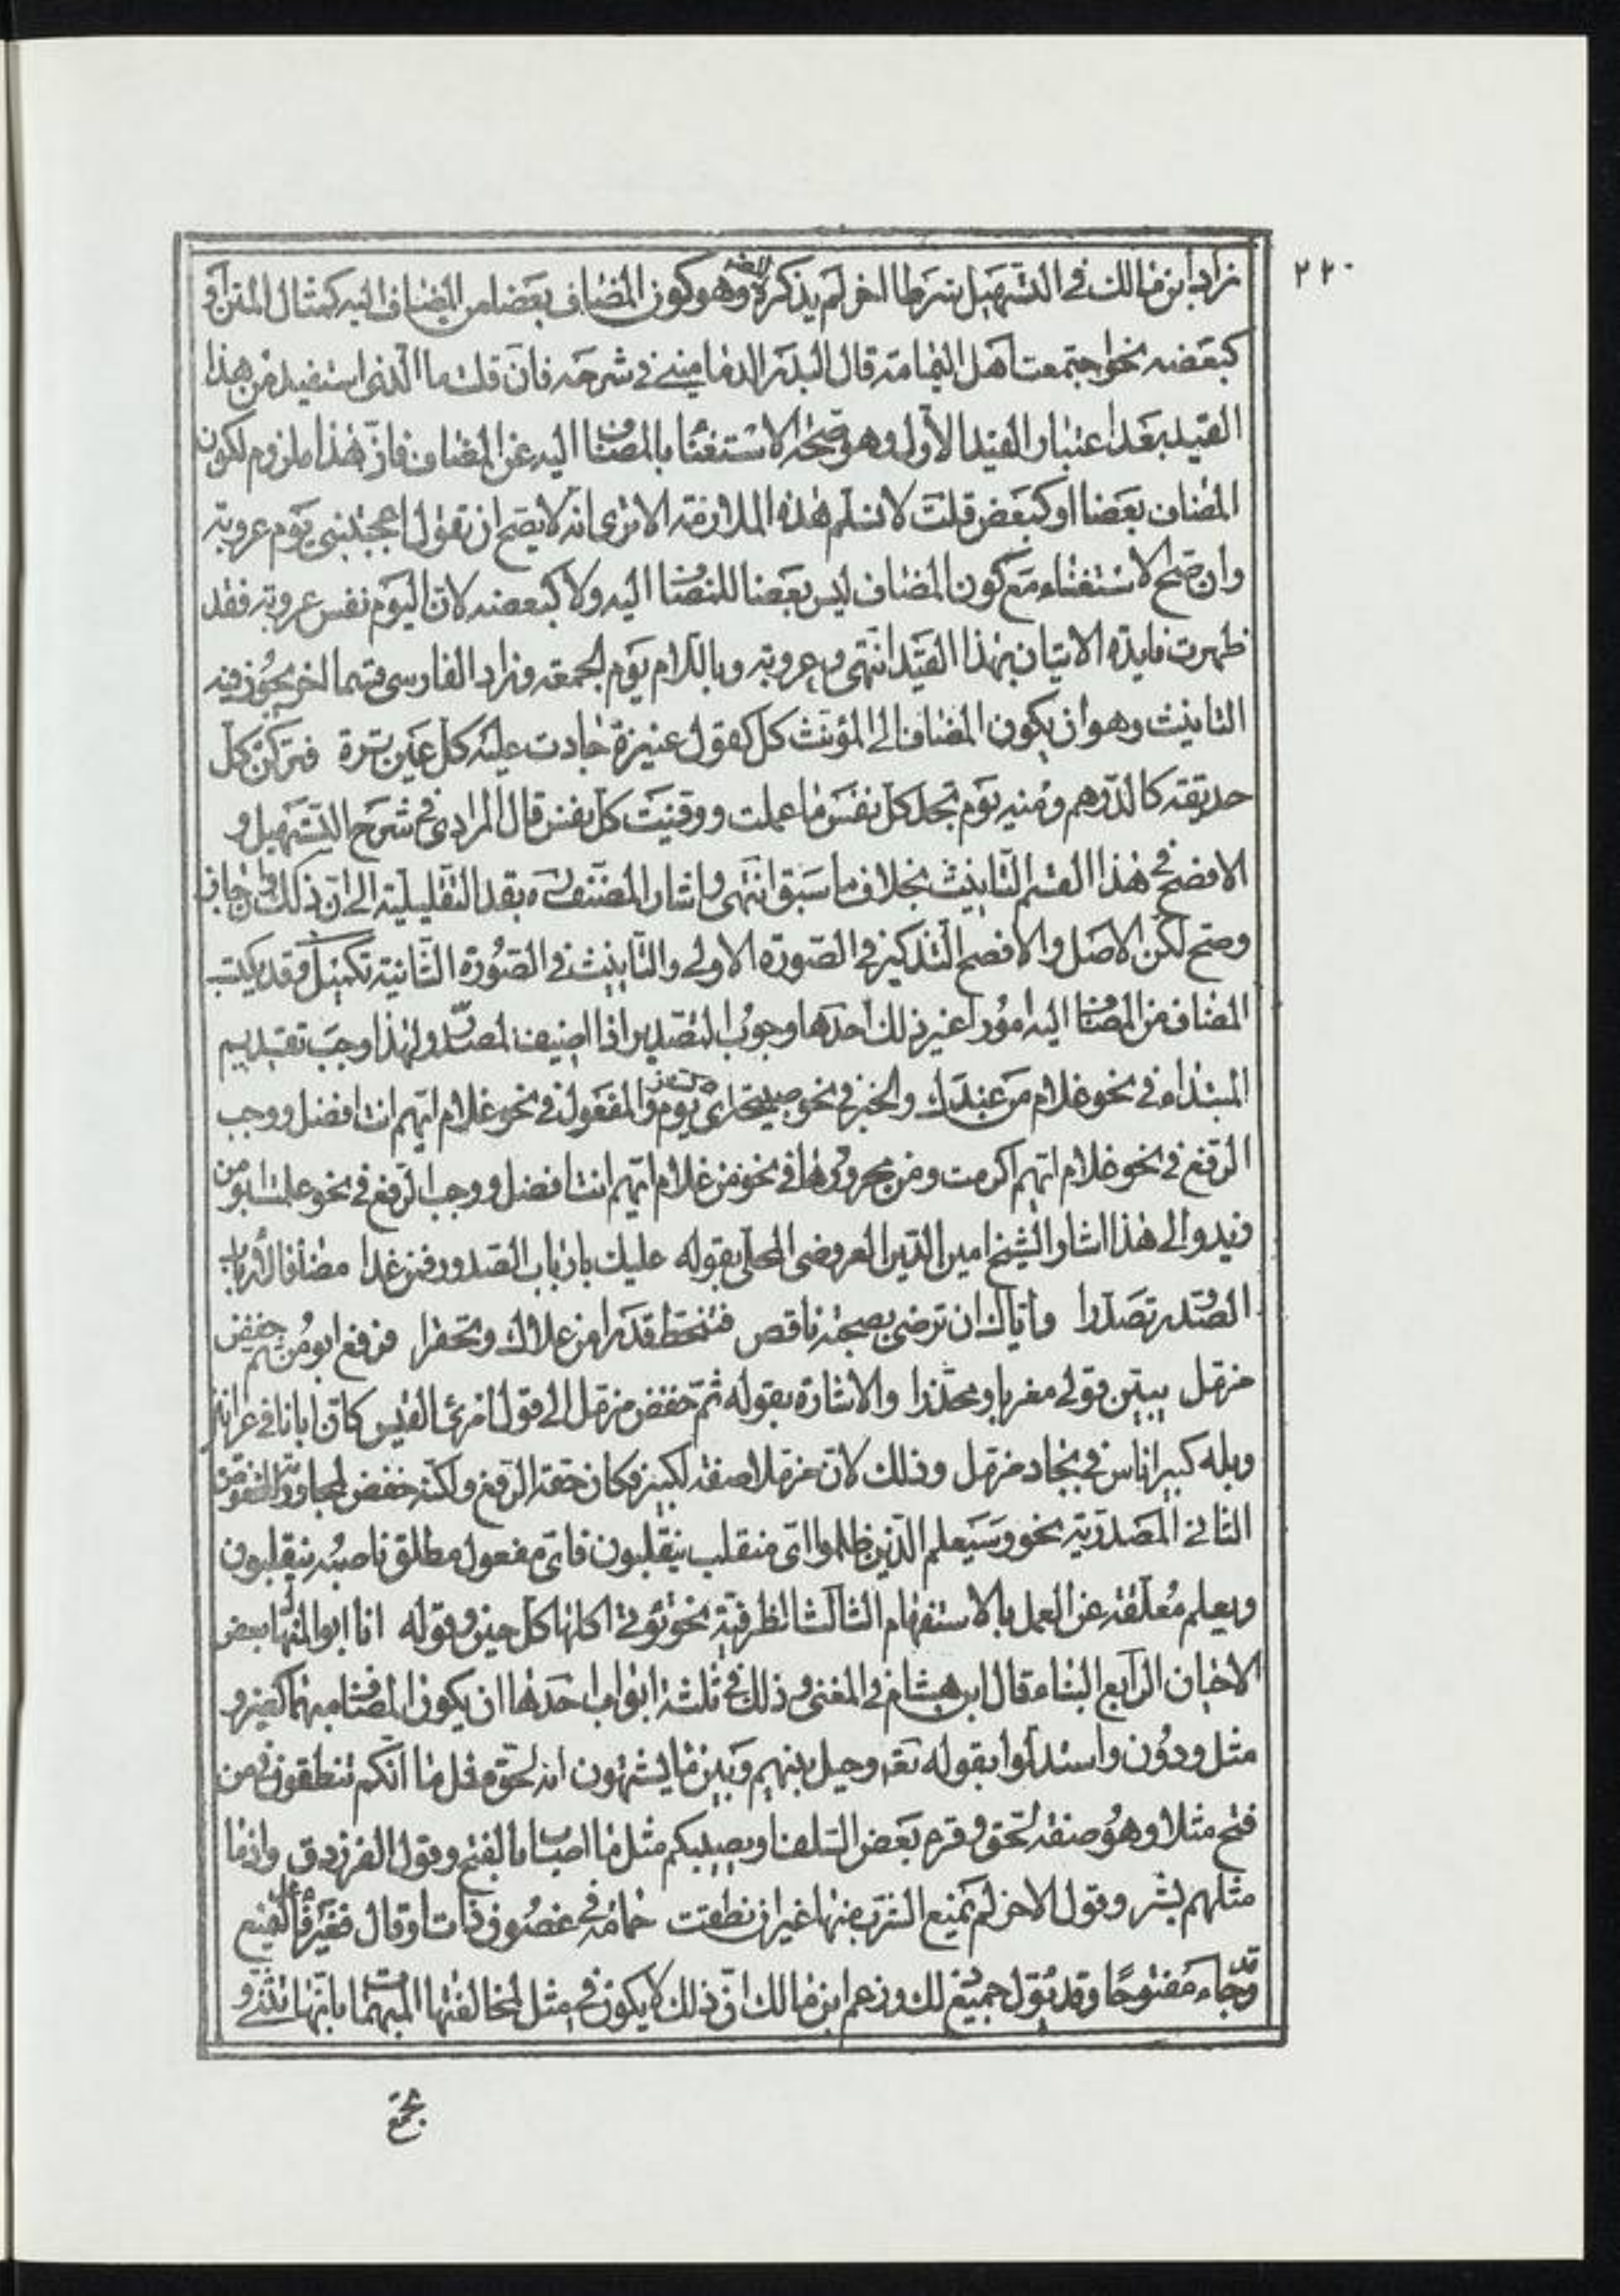 ٢٢٠
زاد ابن مالك في التسهيل شرطا اخر لم يذكره المصنف وهو كون المضاف بعضا من المضاف اليه كمثال المتن او
كبعضه نحو اجتمعت اهل اليمامة قال البدر الدماميني في شرحه فان قلت ما الذي استفيد من هذا
القيد بعد اعتبار القيد الاول وهو صحة الاستغنا بالمضاف اليه عن المضاف فان هذا ملزوم لكون
المضاف بعضا او كبعض قلت لا نسلم هذه الملازمة الا ترى انه لا يصح ان تقول اعجبتني يوم عروبة
وان صح الاستغناء مع كون المضاف ليس بعضا للمضاف اليه ولا كبعضه لان اليوم نفس عروبة فقد
ظهرت فايدة الاتيان بهذا القيد انتهى وعروبة وباللام يوم الجمعة وزاد الفارسي قسما اخر يجوز فيه
التانيث وهو ان يكون المضاف الى المؤنث كل كقول عنيزة جادت عليه كل عين ثرة فتركن كل
حديقة كالدرهم ومنه يوم تجد كل نفس ما عملت ووفيت كل نفس قال المرادي في شرح التسهيل و
الافصح في هذا القسم التانيث بخلاف ما سبق انتهى واشار المصنف ره بقد التقليلية الى ان ذلك وان جاز
وصح لكن الاصل والافصح التذكير في الصورة الاولى والتانيث في الصورة الثانية تكميل وقد يكتسب
المضاف من المضاف اليه امورا غير ذلك احدها وجوب التصدير اذا اضيف لمصدر ولهذا وجب تقديم
المبتداء في نحو غلام من عندك والخبر في نحو صبيحة اي يوم سفرك والمفعول في نحو غلام ايهم انت افضل ووجب
الرفع في نحو غلام ايهم اكرمت ومن مجرورها في نحو من غلام ايهم انت افضل ووجب الرفع في نحو علمت ابو من
زيد والى هذا اشار الشيخ امين الدين العروضي المحلى بقوله عليك بارباب الصدور فمن غدا مضافا لارباب
الصدور تصدرا واياك ان ترضى بصحبة ناقص فتنحط قدرا من علاك وتحقرا فرفع ابو من ثم خفض
مزمل يبين قولي مغريا ومحذرا والاشارة بقوله ثم خفض مزمل الى قول امرئ القيس كان ابانا في عرانين
وبله كبير اناس في بجاد مزمل وذلك لان مزملا صفة لكبير فكان حقه الرفع ولكنه خفض لمجاورته المخفوض
الثاني المصدرية نحو وسيعلم الذين ظلموا اي منقلب ينقلبون فاي مفعول مطلق ناصبه ينقلبون
ويعلم معلقة عن العمل بالاستفهام الثالث الظرفية نحو تؤتي اكلها كل حين وقوله انا ابو المنهال بعض
الاحيان الرابع البناء قال ابن هشام في المغني وذلك في ثلثة ابواب احدها ان يكون المضاف مبهما كغير و
مثل ودون واستدلوا بقوله تعه وحيل بينهم وبين ما يشتهون انه لحق مثل ما انكم تنطقون فمن
فتح مثلا وهو صفة لحق وقرء بعض السلف او يصيبكم مثل ما اصاب بالفتح وقول الفرزدق واذ ما
مثلهم بشر وقول الاخر لم يمنع الشرب منها غير ان نطقت حمامة في غصون ذات اوقال فغير فاعل ليمنع
وقد جاء مفتوحا وقد يؤول جميع ذلك وزعم ابن مالك ان ذلك لا يكون في مثل لمخالفتها المبهمات بانها تثنى و
تجمع